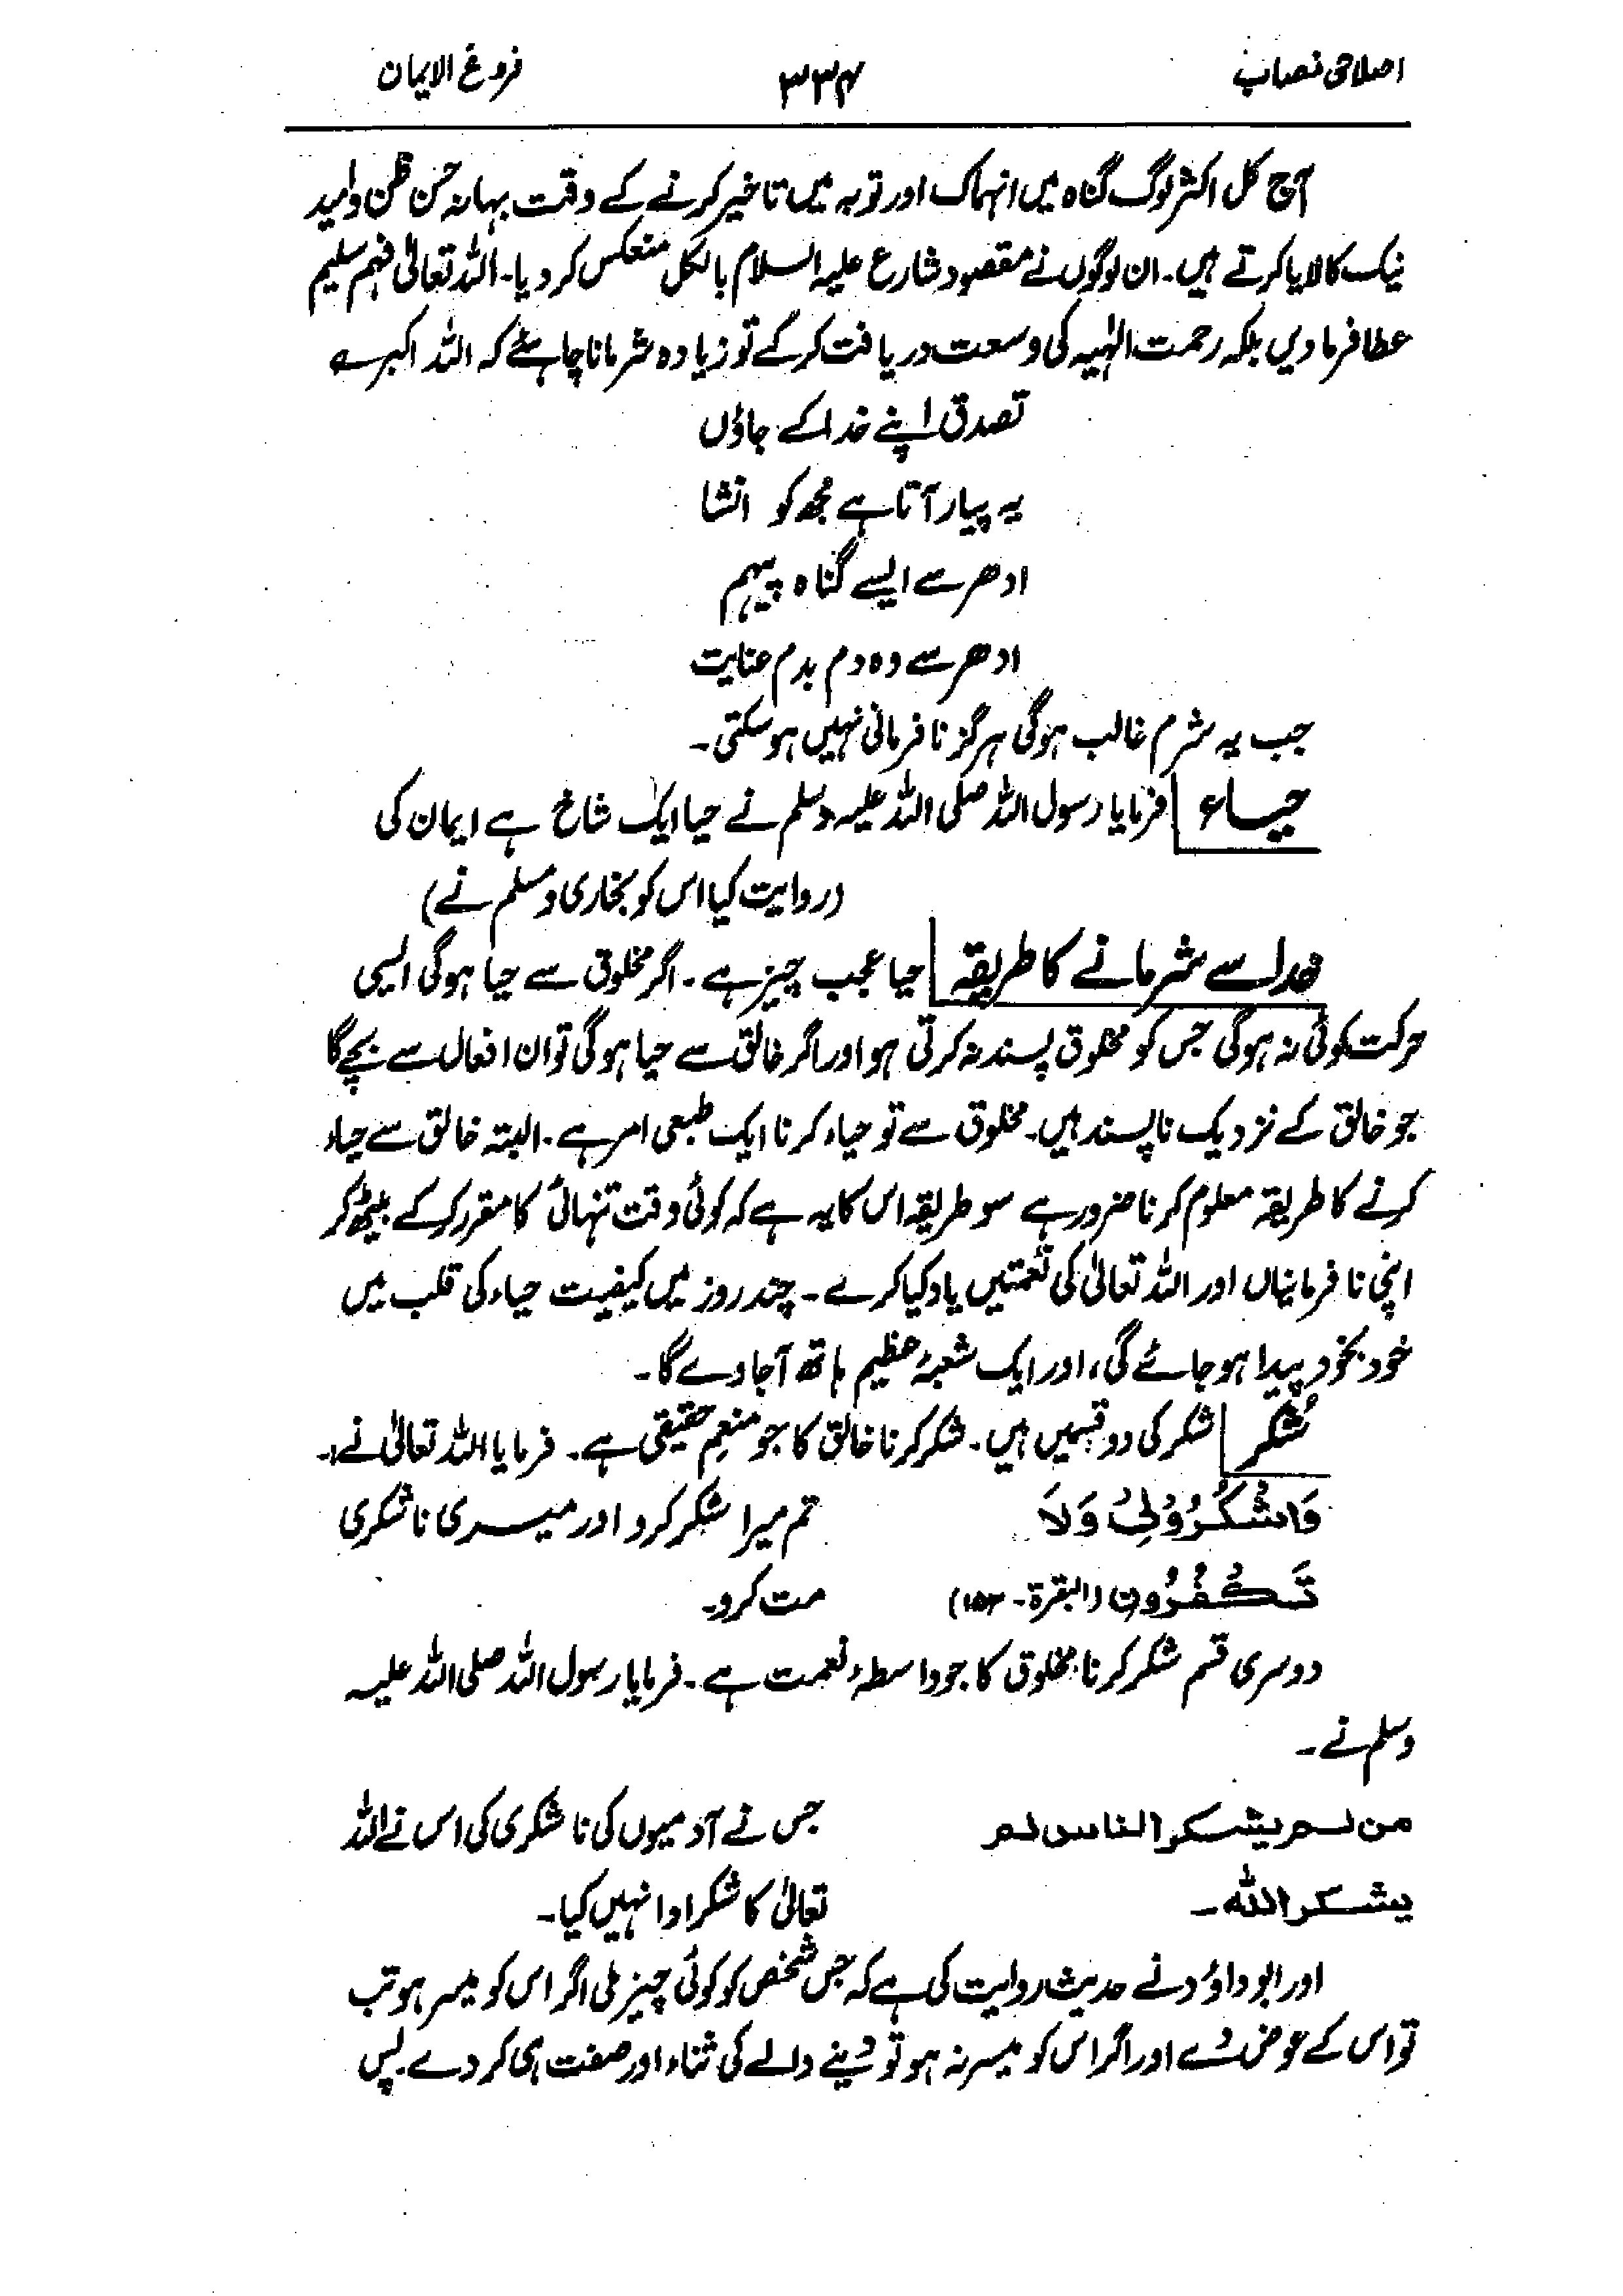 اصلاحی نصاب
۳۳۴
فروغ الایمان
آج کل اکثر لوگ گناہ میں انہماک اور توبہ میں تاخیر کرنے کے وقت بہانہ حسن ظن و امید
نیک کا لایا کرتے ہیں۔ ان لوگوں نے مقصود شارع علیہ السلام بالکل منعکس کر دیا۔ اللہ تعالیٰ فہم سلیم
عطا فرما دیں بلکہ رحمت الٰہیہ کی وسعت دریافت کر کے تو زیادہ شرمانا چاہئے کہ اللہ اکبر ے
تصدق اپنے خدا کے جاؤں
یہ پیار آتا ہے مجھ کو انشا
ادھر سے ایسے گناہ پیہم
ادھر سے وہ دم بدم عنایت
جب یہ شرم غالب ہوگی ہرگز نافرمانی نہیں ہوسکتی۔
حیاء فرمایا رسول اللہ صلی اللہ علیہ وسلم نے حیا ایک شاخ ہے ایمان کی
(روایت کیا اس کو بخاری و مسلم نے)
خدا سے شرمانے کا طریقہ حیا عجب چیز ہے۔ اگر مخلوق سے حیا ہوگی ایسی
حرکت کوئی نہ ہوگی جس کو مخلوق پسند نہ کرتی ہو اور اگر خالق سے حیا ہوگی تو ان افعال سے بچے گا
جو خالق کے نزدیک ناپسند ہیں۔ مخلوق سے تو حیاء کرنا ایک طبعی امر ہے۔ البتہ خالق سے حیاء
کرنے کا طریقہ معلوم کرنا ضرور ہے سو طریقہ اس کا یہ ہے کہ کوئی وقت تنہائی کا مقرر کر کے بیٹھ کر
اپنی نافرمانیاں اور اللہ تعالیٰ کی نعمتیں یاد کیا کرے۔ چند روز میں کیفیت حیاء کی قلب میں
خود بخود پیدا ہو جائے گی، اور ایک شعبۂ عظیم ہاتھ آجاوے گا۔
شُکر شکر کی دو قسمیں ہیں۔ شکر کرنا خالق کا جو منعمِ حقیقی ہے۔ فرمایا اللہ تعالیٰ نے:۔
وَاشْكُرُوْلِيْ وَلَا
تم میرا شکر کرو اور میری ناشکری
تَكْفُرُوْنِ (البقرۃ۔ ۱۵۲)
مت کرو۔
دوسری قسم شکر کرنا مخلوق کا جو واسطۂ نعمت ہے۔ فرمایا رسول اللہ صلی اللہ علیہ
وسلم نے۔
من لم يشكر الناس لم
جس نے آدمیوں کی ناشکری کی اس نے اللہ
يشكر الله۔
تعالیٰ کا شکر ادا نہیں کیا۔
اور ابوداؤد نے حدیث روایت کی ہے کہ جس شخص کو کوئی چیز ملی اگر اس کو میسر ہو تب
تو اس کے عوض دے اور اگر اس کو میسر نہ ہو تو دینے والے کی ثناء اور صفت ہی کر دے پس